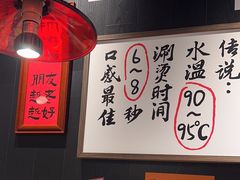 传说：
水温90~95℃
涮烫时间
6~8秒
口感最佳
朋友
越来
越好